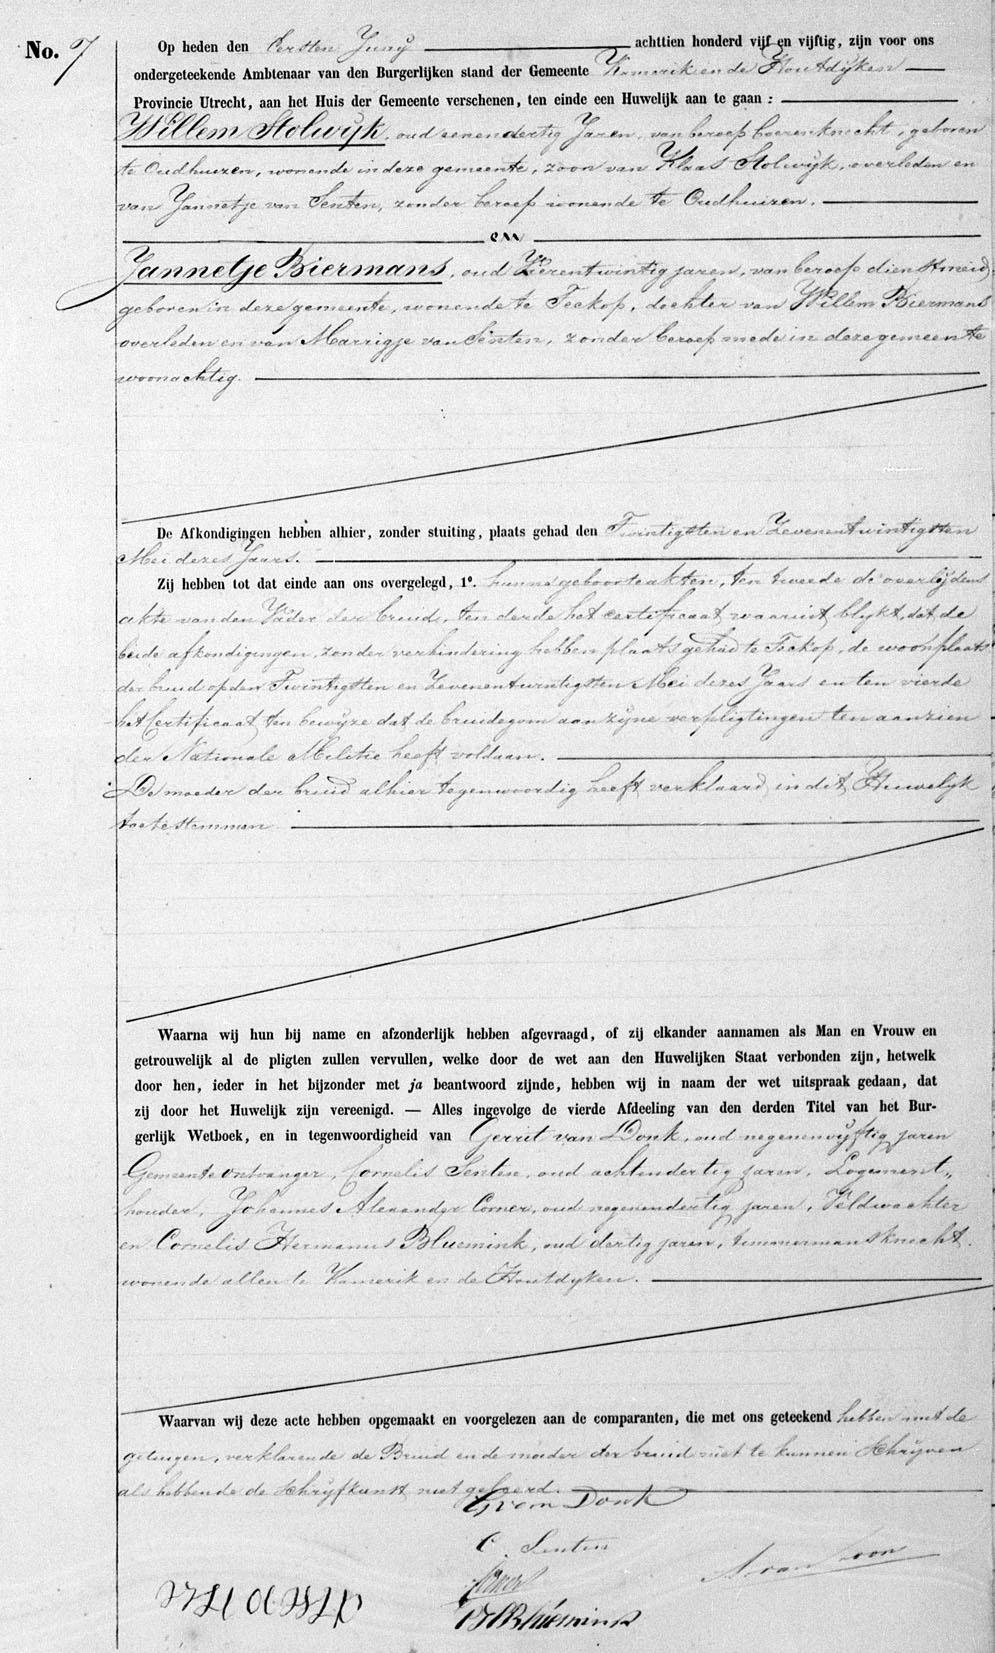 No. 7
Op heden den Eersten Juny achttien honderd vijf en vijftig, zijn voor ons
ondergeteekende Ambtenaar van den Burgerlijken stand der Gemeente Kamerik en de Houtdijken
Provincie Utrecht, aan het Huis der Gemeente verschenen, ten einde een Huwelijk aan te gaan:
Willem Stolwijk, oud eenendertig Jaren, van beroep boerenknecht, geboren
te Oudhuizen, wonende in deze gemeente, zoon van Klaas Stolwijk, overleden en
van Jannetje van Senten, zonder beroep wonende te Oudhuizen.
en
Jannetje Biermans, oud Vierentwintig jaren, van beroep dienstmeid,
geboren in deze gemeente, wonende te Teckop, dochter van Willem Biermans
overleden en van Marrigje van Senten, zonder beroep mede in deze gemeente
woonachtig.
De Afkondigingen hebben alhier, zonder stuiting, plaats gehad den Twintigsten en Zevenentwintigsten
Mei dezes Jaars.
Zij hebben tot dat einde aan ons overgelegd, 1º. hunne geboorteakten, ten tweede de overlijdens
akte van den Vader der bruid, ten derde het certificaat waaruit blykt, dat de
beide afkondigingen, zonder verhindering hebben plaats gehad te Teckop, de woonplaats
der bruid op den Twintigsten en Zevenentwintigsten Mei dezes Jaars en ten vierde
het Certificaat ten bewyze dat de bruidegom aan zyne verpligtingen ten aanzien
der Nationale Militie heeft voldaan.
De moeder der bruid alhier tegenwoordig heeft verklaard, in dit Huwelijk
toe te stemmen.
Waarna wij hun bij name en afzonderlijk hebben afgevraagd, of zij elkander aannamen als Man en Vrouw en
getrouwelijk al de pligten zullen vervullen, welke door de wet aan den Huwelijken Staat verbonden zijn, hetwelk
door hen, ieder in het bijzonder met ja beantwoord zijnde, hebben wij in naam der wet uitspraak gedaan, dat
zij door het Huwelijk zijn vereenigd. — Alles ingevolge de vierde Afdeeling van den derden Titel van het Bur-
gerlijk Wetboek, en in tegenwoordigheid van Gerrit van Donk, oud negenenvijftig jaren
Gemeente ontvanger, Cornelis Senten, oud achtendertig jaren, Logement„
houder, Johannes Alexander Corner, oud negenendertig jaren, Veldwachter
en Cornelis Hermanus Bluemink, oud dertig jaren, timmermansknecht,
wonende allen te Kamerik en de Houtdyken.
Waarvan wij deze acte hebben opgemaakt en voorgelezen aan de comparanten, die met ons geteekend hebben met de
getuigen, verklarende de Bruid en de moeder der bruid niet te kunnen schryven
als hebbende de schryfkunst niet geleerd.
G van Donk
C. Senten
Corner
CH Bluemink